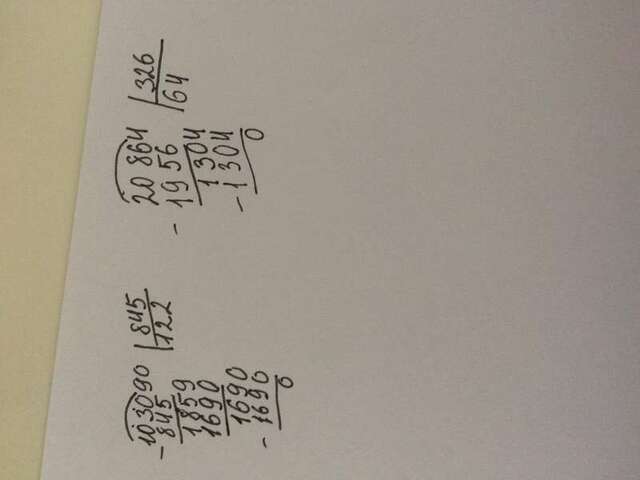 - 103090 | 845
845 122
1859
1690
1690
- 1690
0
- 20 864 | 326
1956 64
1304
- 1304
0